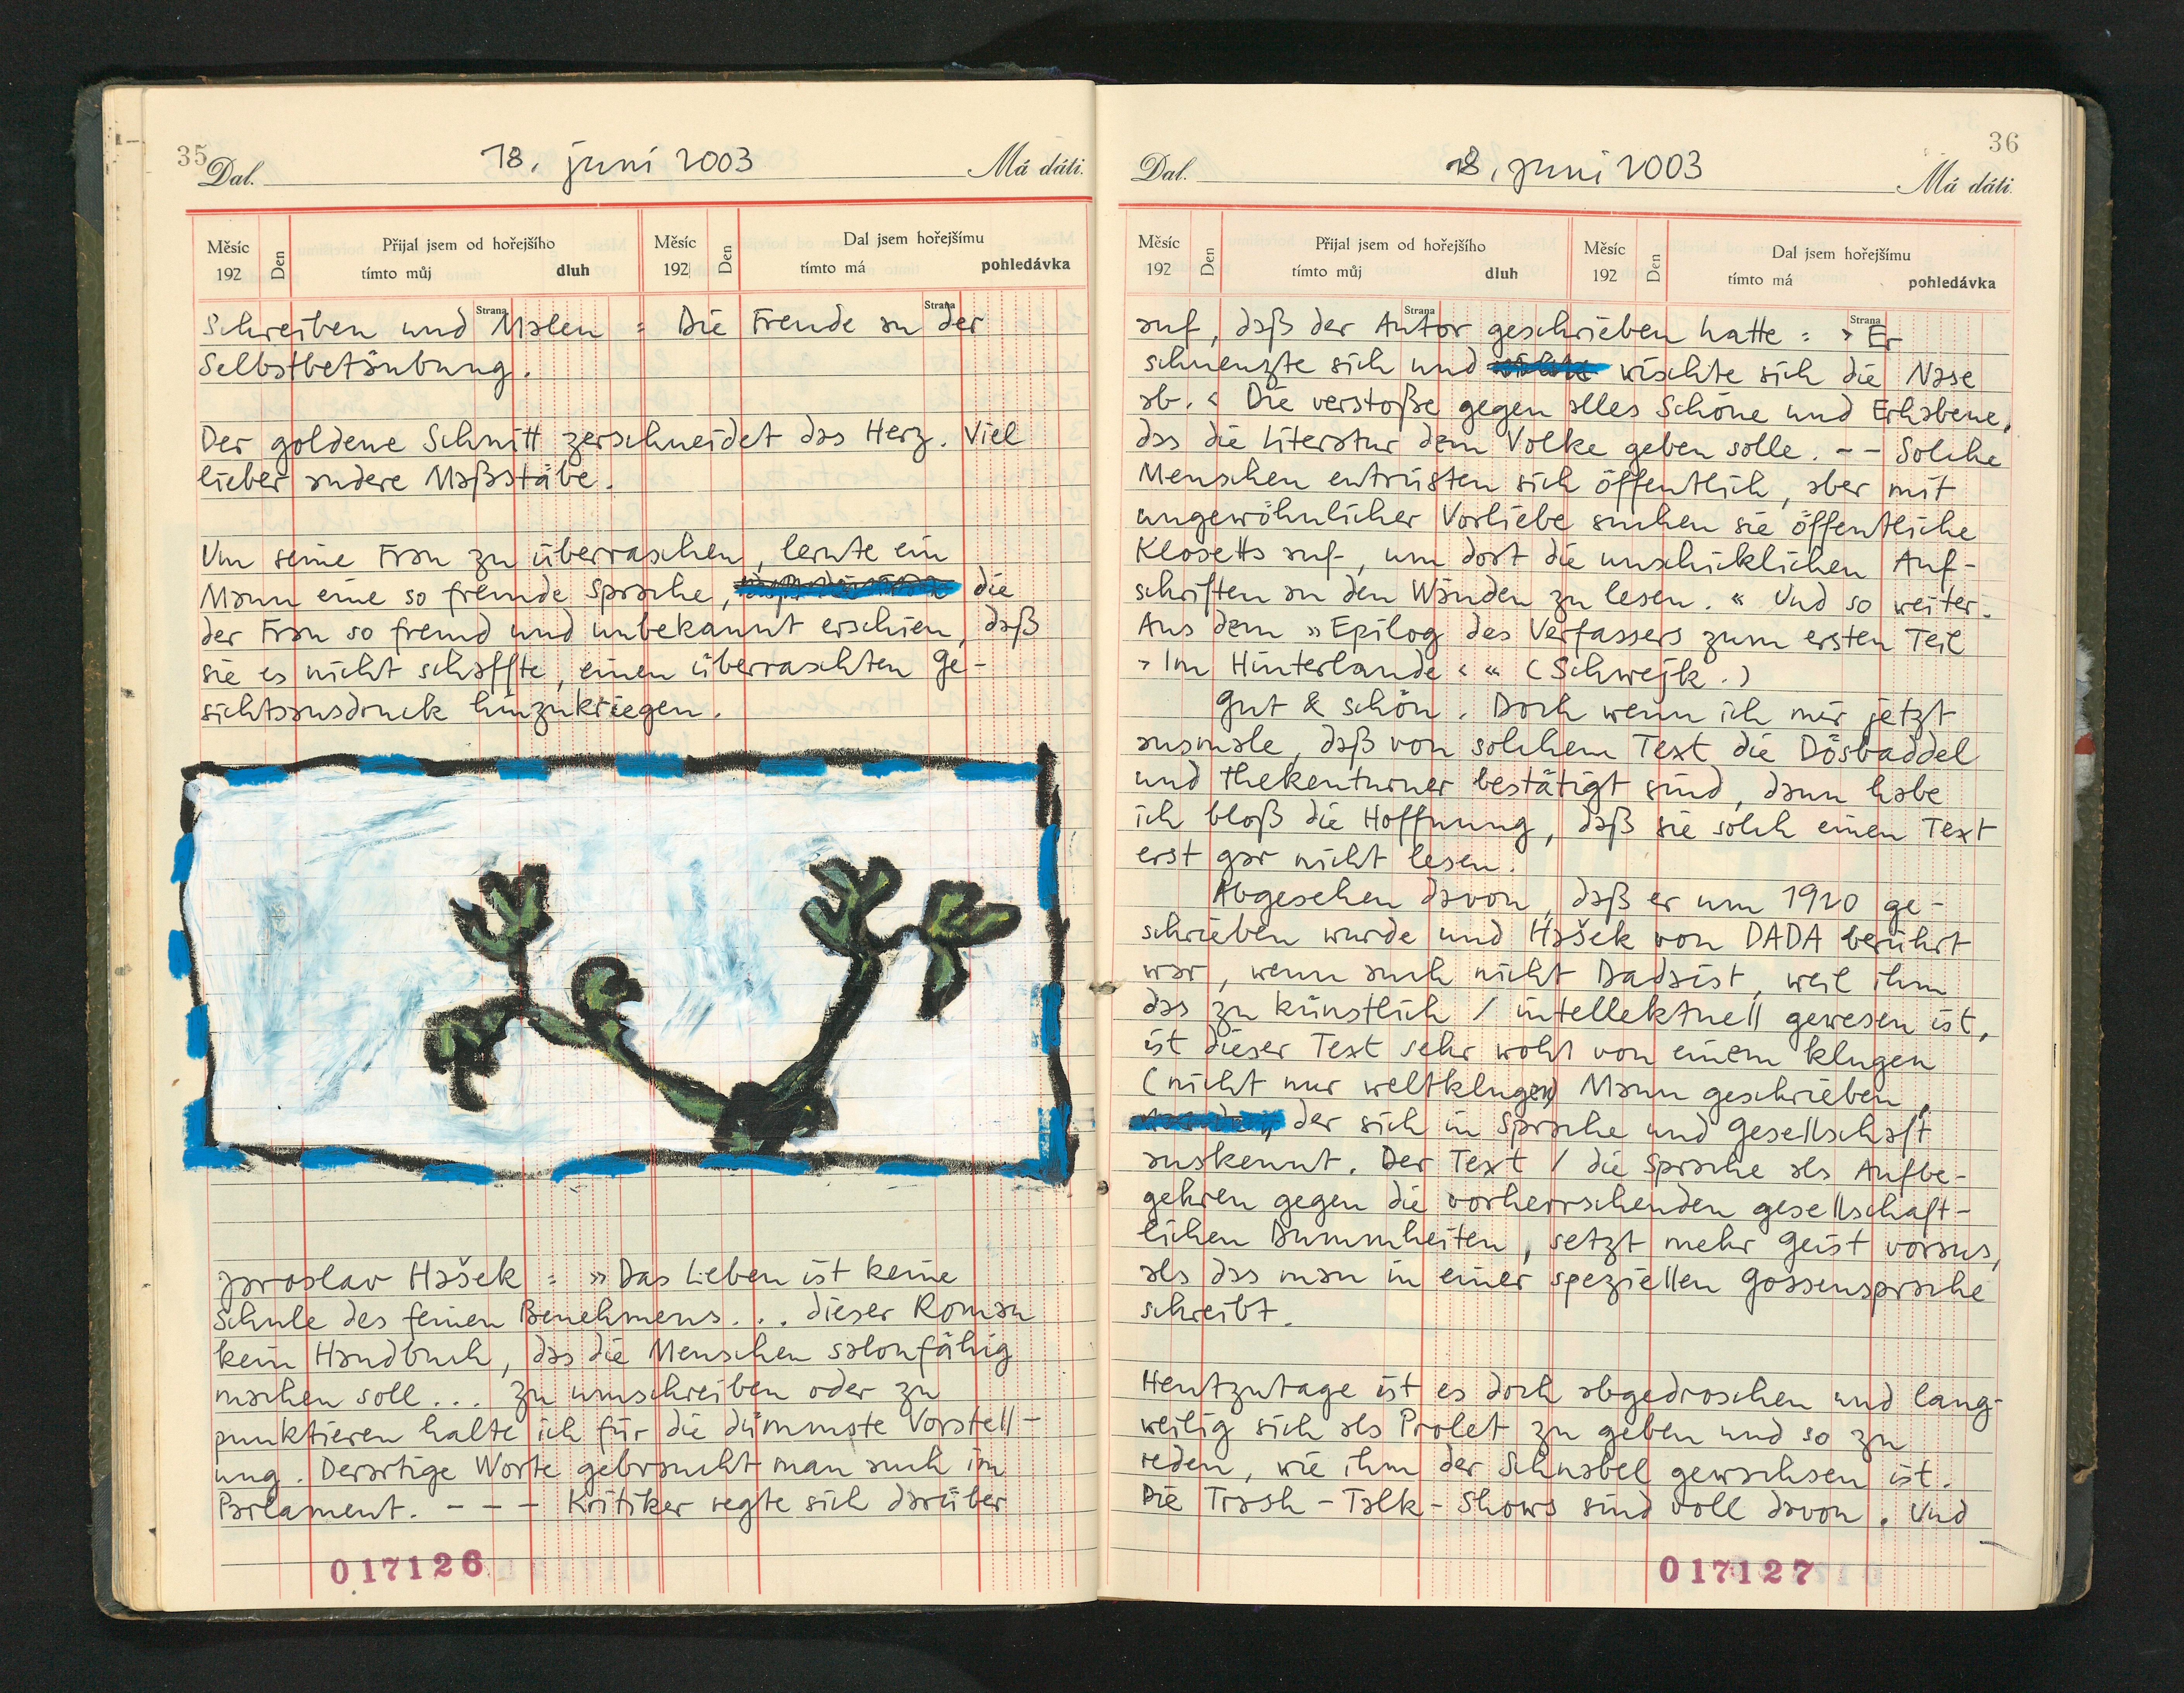 35
Dal. 18. juni 2003 Má dáti.
Měsíc 192 Den Přijal jsem od hořejšího tímto můj dluh Měsíc 192 Den Dal jsem hořejšímu tímto má pohledávka
Strana Strana
Schreiben und Malen = Die Freude an der
Selbstbetäubung.
Der goldene Schnitt zerschneidet das Herz. Viel
lieber andere Maßstäbe.
Um seine Frau zu überraschen, lernte ein
Mann eine so fremde Sprache, die
der Frau so fremd und unbekannt erschien, daß
sie es nicht schaffte, einen überraschten Ge-
sichtsausdruck hinzukriegen.
Jaroslav Hašek: »Das Leben ist keine
Schule des feinen Benehmens... dieser Roman
kein Handbuch, das die Menschen salonfähig
machen soll... zu umschreiben oder zu
punktieren halte ich für die dümmste Vorstell-
ung. Derartige Worte gebraucht man auch im
Parlament. - - - Kritiker regte sich darüber
017126
36
Dal. 18. juni 2003 Má dáti.
Měsíc 192 Den Přijal jsem od hořejšího tímto můj dluh Měsíc 192 Den Dal jsem hořejšímu tímto má pohledávka
Strana Strana
auf, daß der Autor geschrieben hatte: ›Er
schneuzte sich und wischte sich die Nase
ab.‹ Die verstoße gegen alles Schöne und Erhabene,
das die Literatur dem Volke geben solle. - - Solche
Menschen entrüsten sich öffentlich, aber mit
ungewöhnlicher Vorliebe suchen sie öffentliche
Klosetts auf, um dort die unschicklichen Auf-
schriften an den Wänden zu lesen.« Und so weiter.
Aus dem »Epilog des Verfassers zum ersten Teil
›Im Hinterlande‹« (Schwejk.)
Gut & schön. Doch wenn ich mir jetzt
ausmale, daß von solchem Text die Dösbaddel
und Thekenturner bestätigt sind, dann habe
ich bloß die Hoffnung, daß sie solch einen Text
erst gar nicht lesen.
Abgesehen davon, daß er um 1920 ge-
schrieben wurde und Hašek von DADA berührt
war, wenn auch nicht Dadaist, weil ihm
das zu künstlich / intellektuell gewesen ist,
ist dieser Text sehr wohl von einem klugen
(nicht nur weltklugen) Mann geschrieben,
der sich in Sprache und Gesellschaft
auskennt. Der Text / die Sprache als Aufbe-
gehren gegen die vorherrschenden gesellschaft-
lichen Dummheiten, setzt mehr Geist voraus,
als das man in einer speziellen Gossensprache
schreibt.
Heutzutage ist es doch abgedroschen und lang-
weilig sich als Prolet zu geben und so zu
reden, wie ihm der Schnabel gewachsen ist.
Die Trash-Talk-Shows sind voll davon. Und
017127